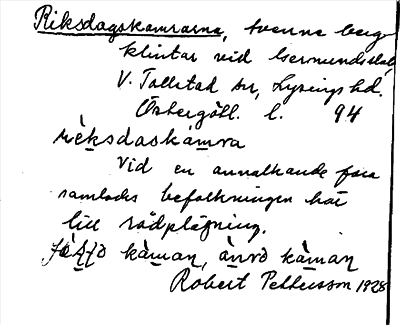 Riksdagskamrarna, tvenne bergs
klintar vid Germundslab
V. Tollstad sn, Lysings hd.
Östergötl. l. 94
rèksdaskàmra
Vid en annalkande fara
samlades befolkningen här
till rådplägning.
kàman, kàman
Robert Pettersson 1928